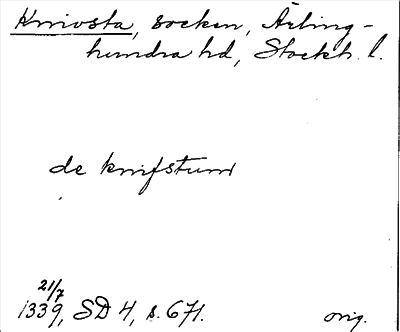 Knivsta, socken, Ärling-
hundra hd, Stockh. l.
de knifstum
21/7
1339, SD 4, s. 671. orig.